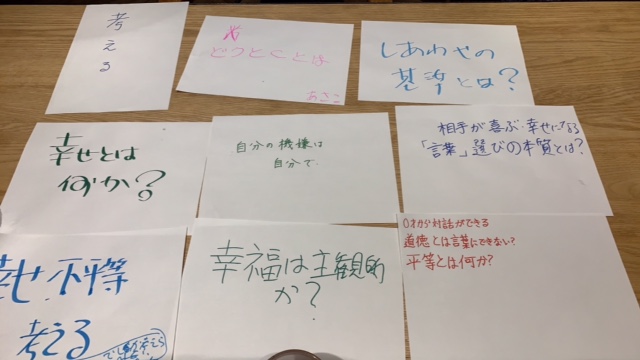 考える
どうとくとは
あさこ
しあわせの
基準とは?
幸せとは
何か?
自分の機嫌は
自分で
相手が喜ぶ・幸せになる
「言葉」選びの本質とは?
幸せ 不平等
考える
幸福は主観的
か?
0才から対話ができる
道徳とは言葉にできない?
平等とは何か?